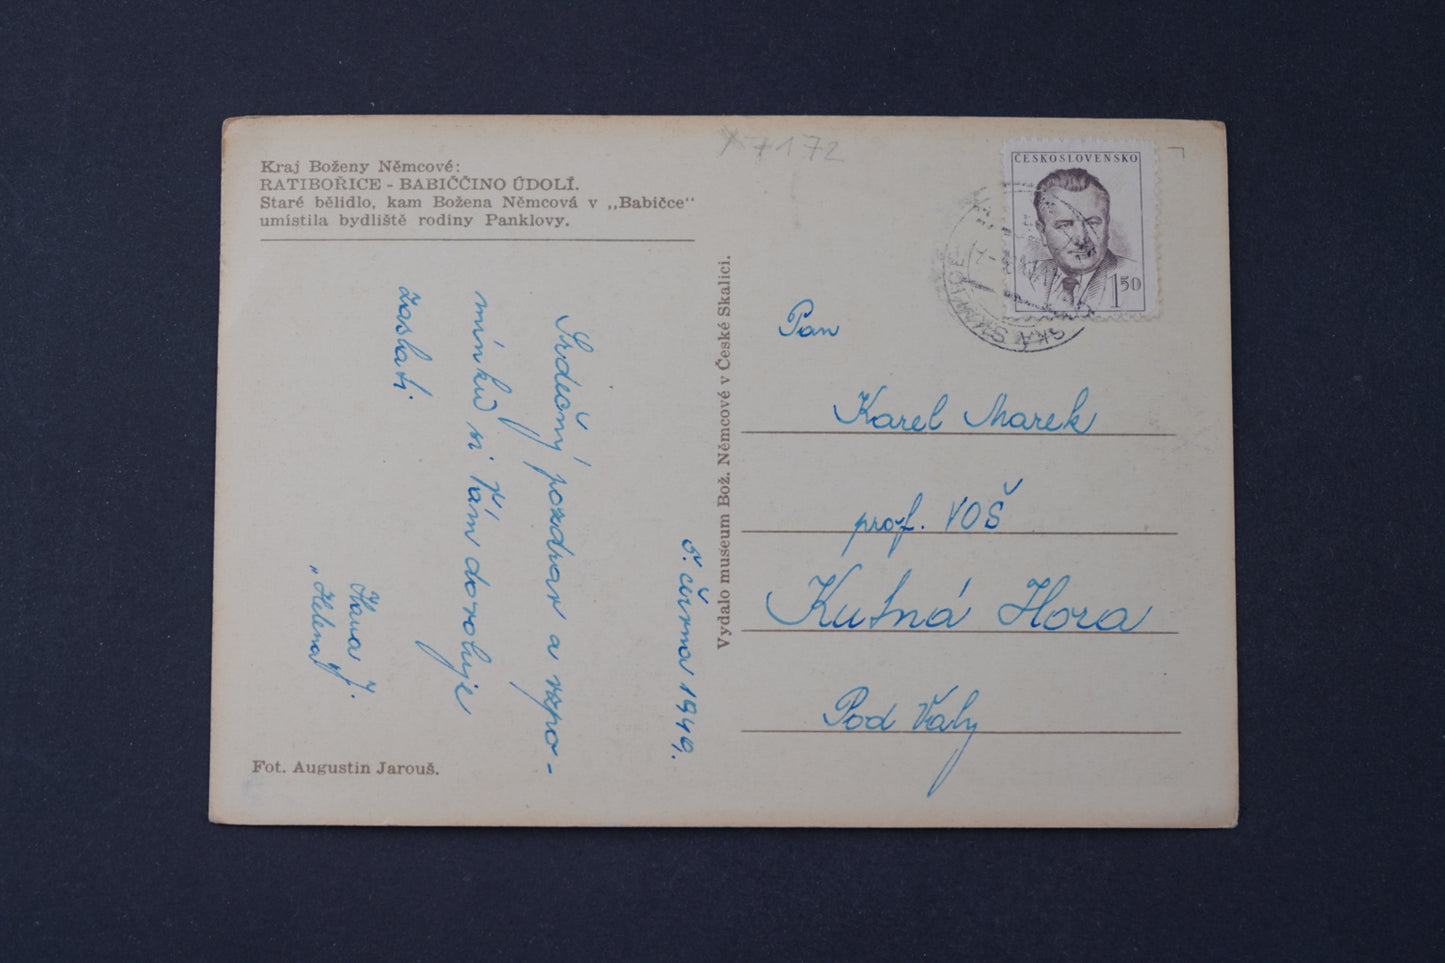 Kraj Boženy Němcové:
RATIBOŘICE - BABIČČINO ÚDOLÍ.
Staré bělidlo, kam Božena Němcová v ,,Babičce"
umístila bydliště rodiny Panklovy.
5. června 1949.
Srdečný pozdrav a vzpo-
mínku si Vám dovoluje
zaslati
Hana J.
„Helena"
Fot. Augustin Jarouš.
Vydalo museum Bož. Němcové v České Skalici.
7172
ČESKOSLOVENSKO
1 50
Pan
Karel Marek
prof. VOŠ
Kutná Hora
Pod Valy